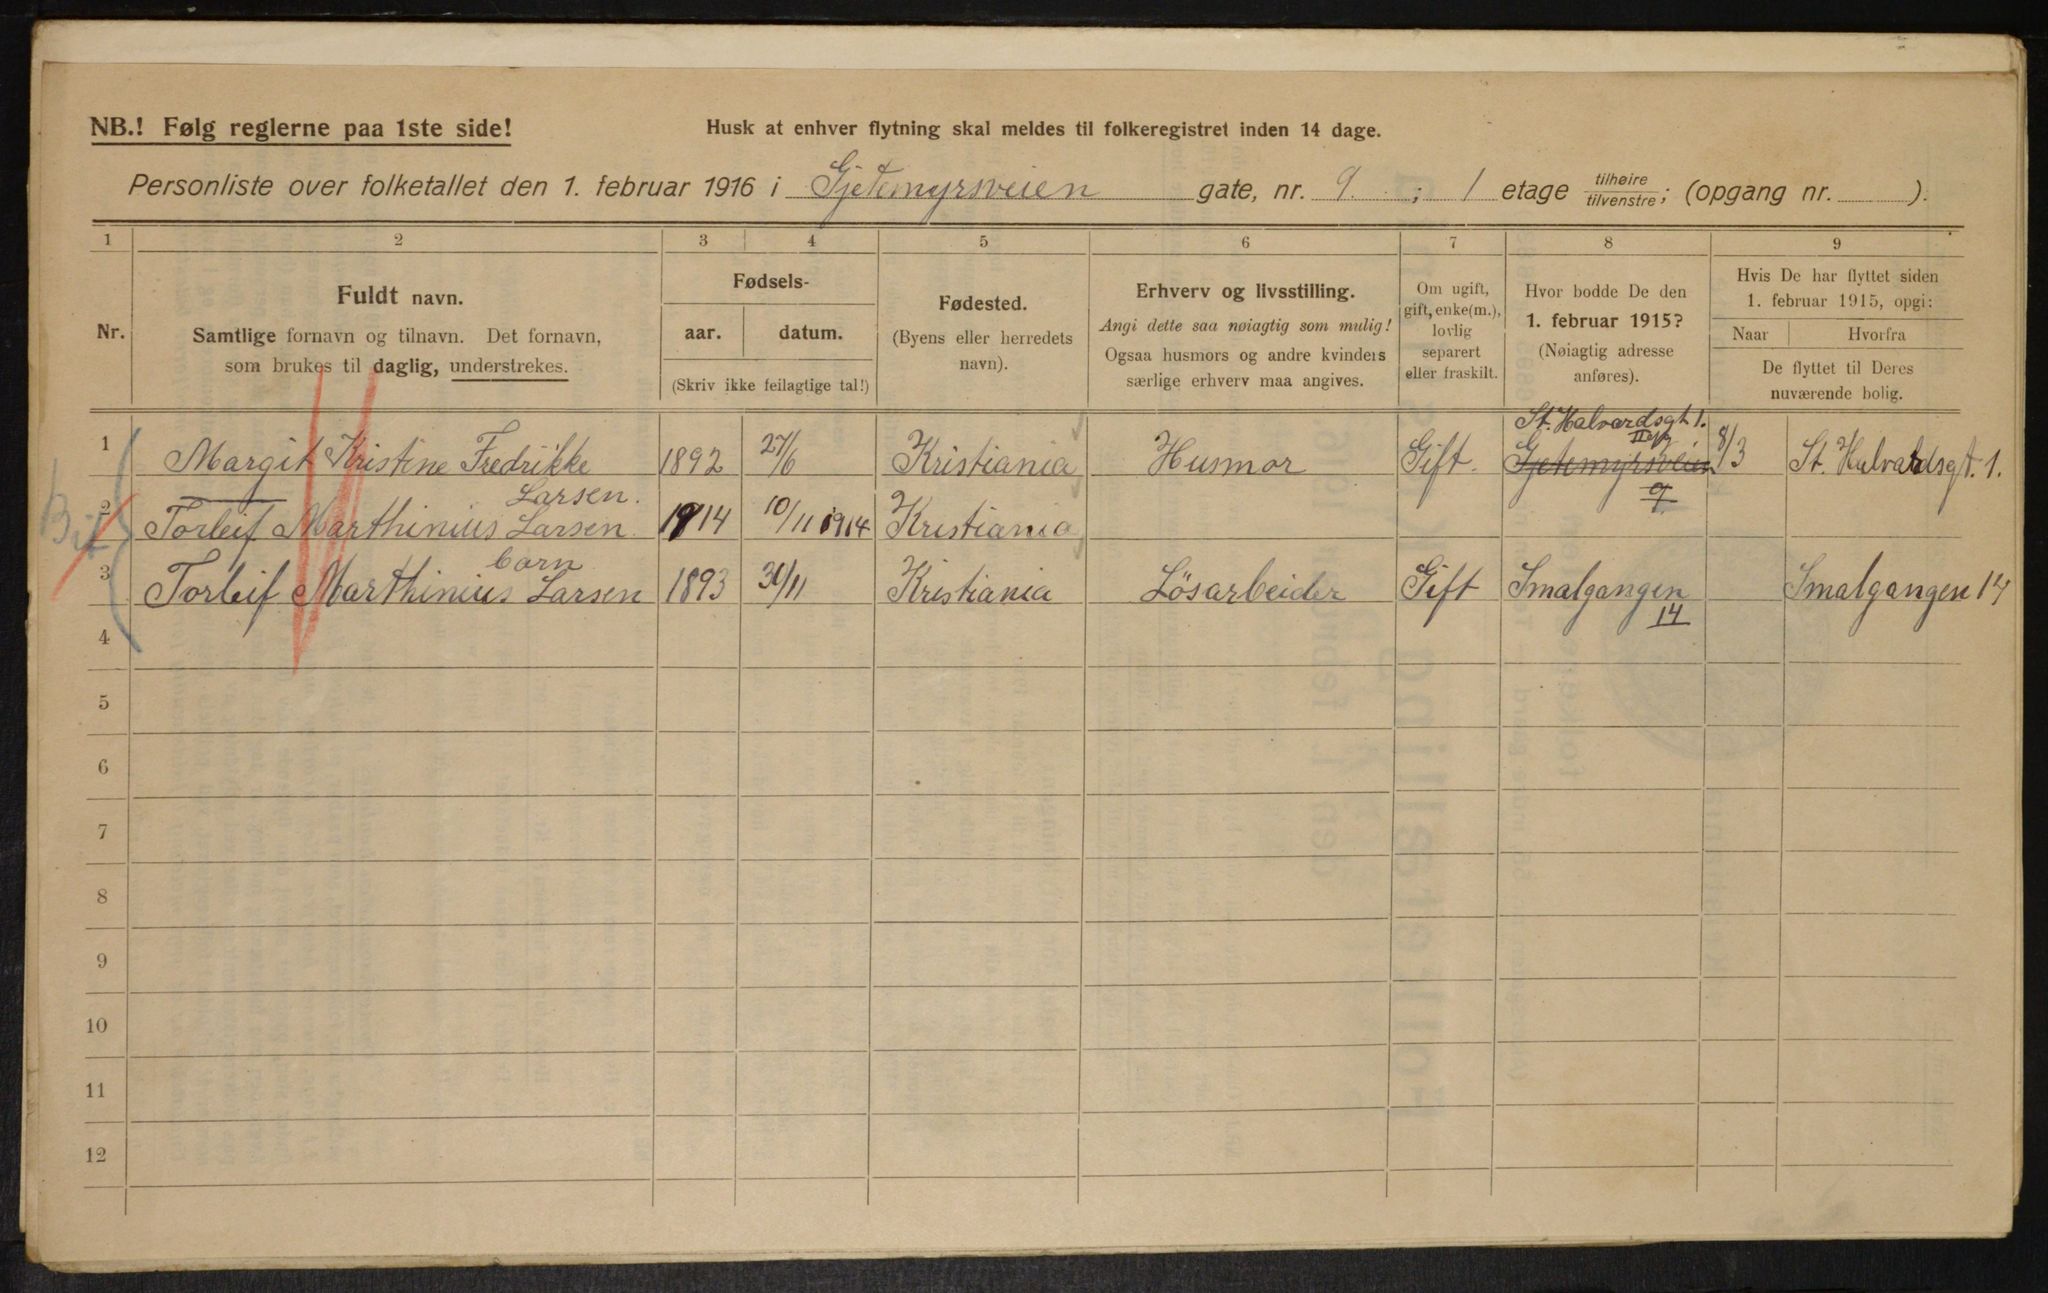 NB.! Følg reglerne paa 1ste side!
Husk at enhver flytning skal meldes til folkeregistret inden 14 dage.
Personliste over folketallet den 1. februar 1916 i Gjetemyrsveien gate, nr. 9. ; 1 etage tilhøire/tilvenstre; (opgang nr. ).
1 2 3 4 5 6 7 8 9
Nr.
Fuldt navn.
Samtlige fornavn og tilnavn. Det fornavn,
som brukes til daglig, understrekes.
Fødsels-
aar. datum.
(Skriv ikke feilagtige tal!)
Fødested.
(Byens eller herredets
navn).
Erhverv og livsstilling.
Angi dette saa nøiagtig som mulig!
Ogsaa husmors og andre kvinders
særlige erhverv maa angives.
Om ugift,
gift, enke(m.),
lovlig
separert
eller fraskilt.
Hvor bodde De den
1. februar 1915?
(Nøiagtig adresse
anføres).
Hvis De har flyttet siden
1. februar 1915, opgi:
Naar Hvorfra
De flyttet til Deres
nuværende bolig.
St. Halvardsgt 1.
1 Margit Kristine Fredrikke 1892 27/6 Kristiania Husmor Gift. Gjetemyrsveien 8/3 St. Halvardsgt. 1.
Larsen. 9
2 Torleif Marthinius Larsen. 1914 10/11 1914 Kristiania
barn
3 Torleif Marthinius Larsen 1893 30/11 Kristiania Lösarbeider Gift Smalgangen Smalgangen 14
14
4
5
6
7
8
9
10
11
12